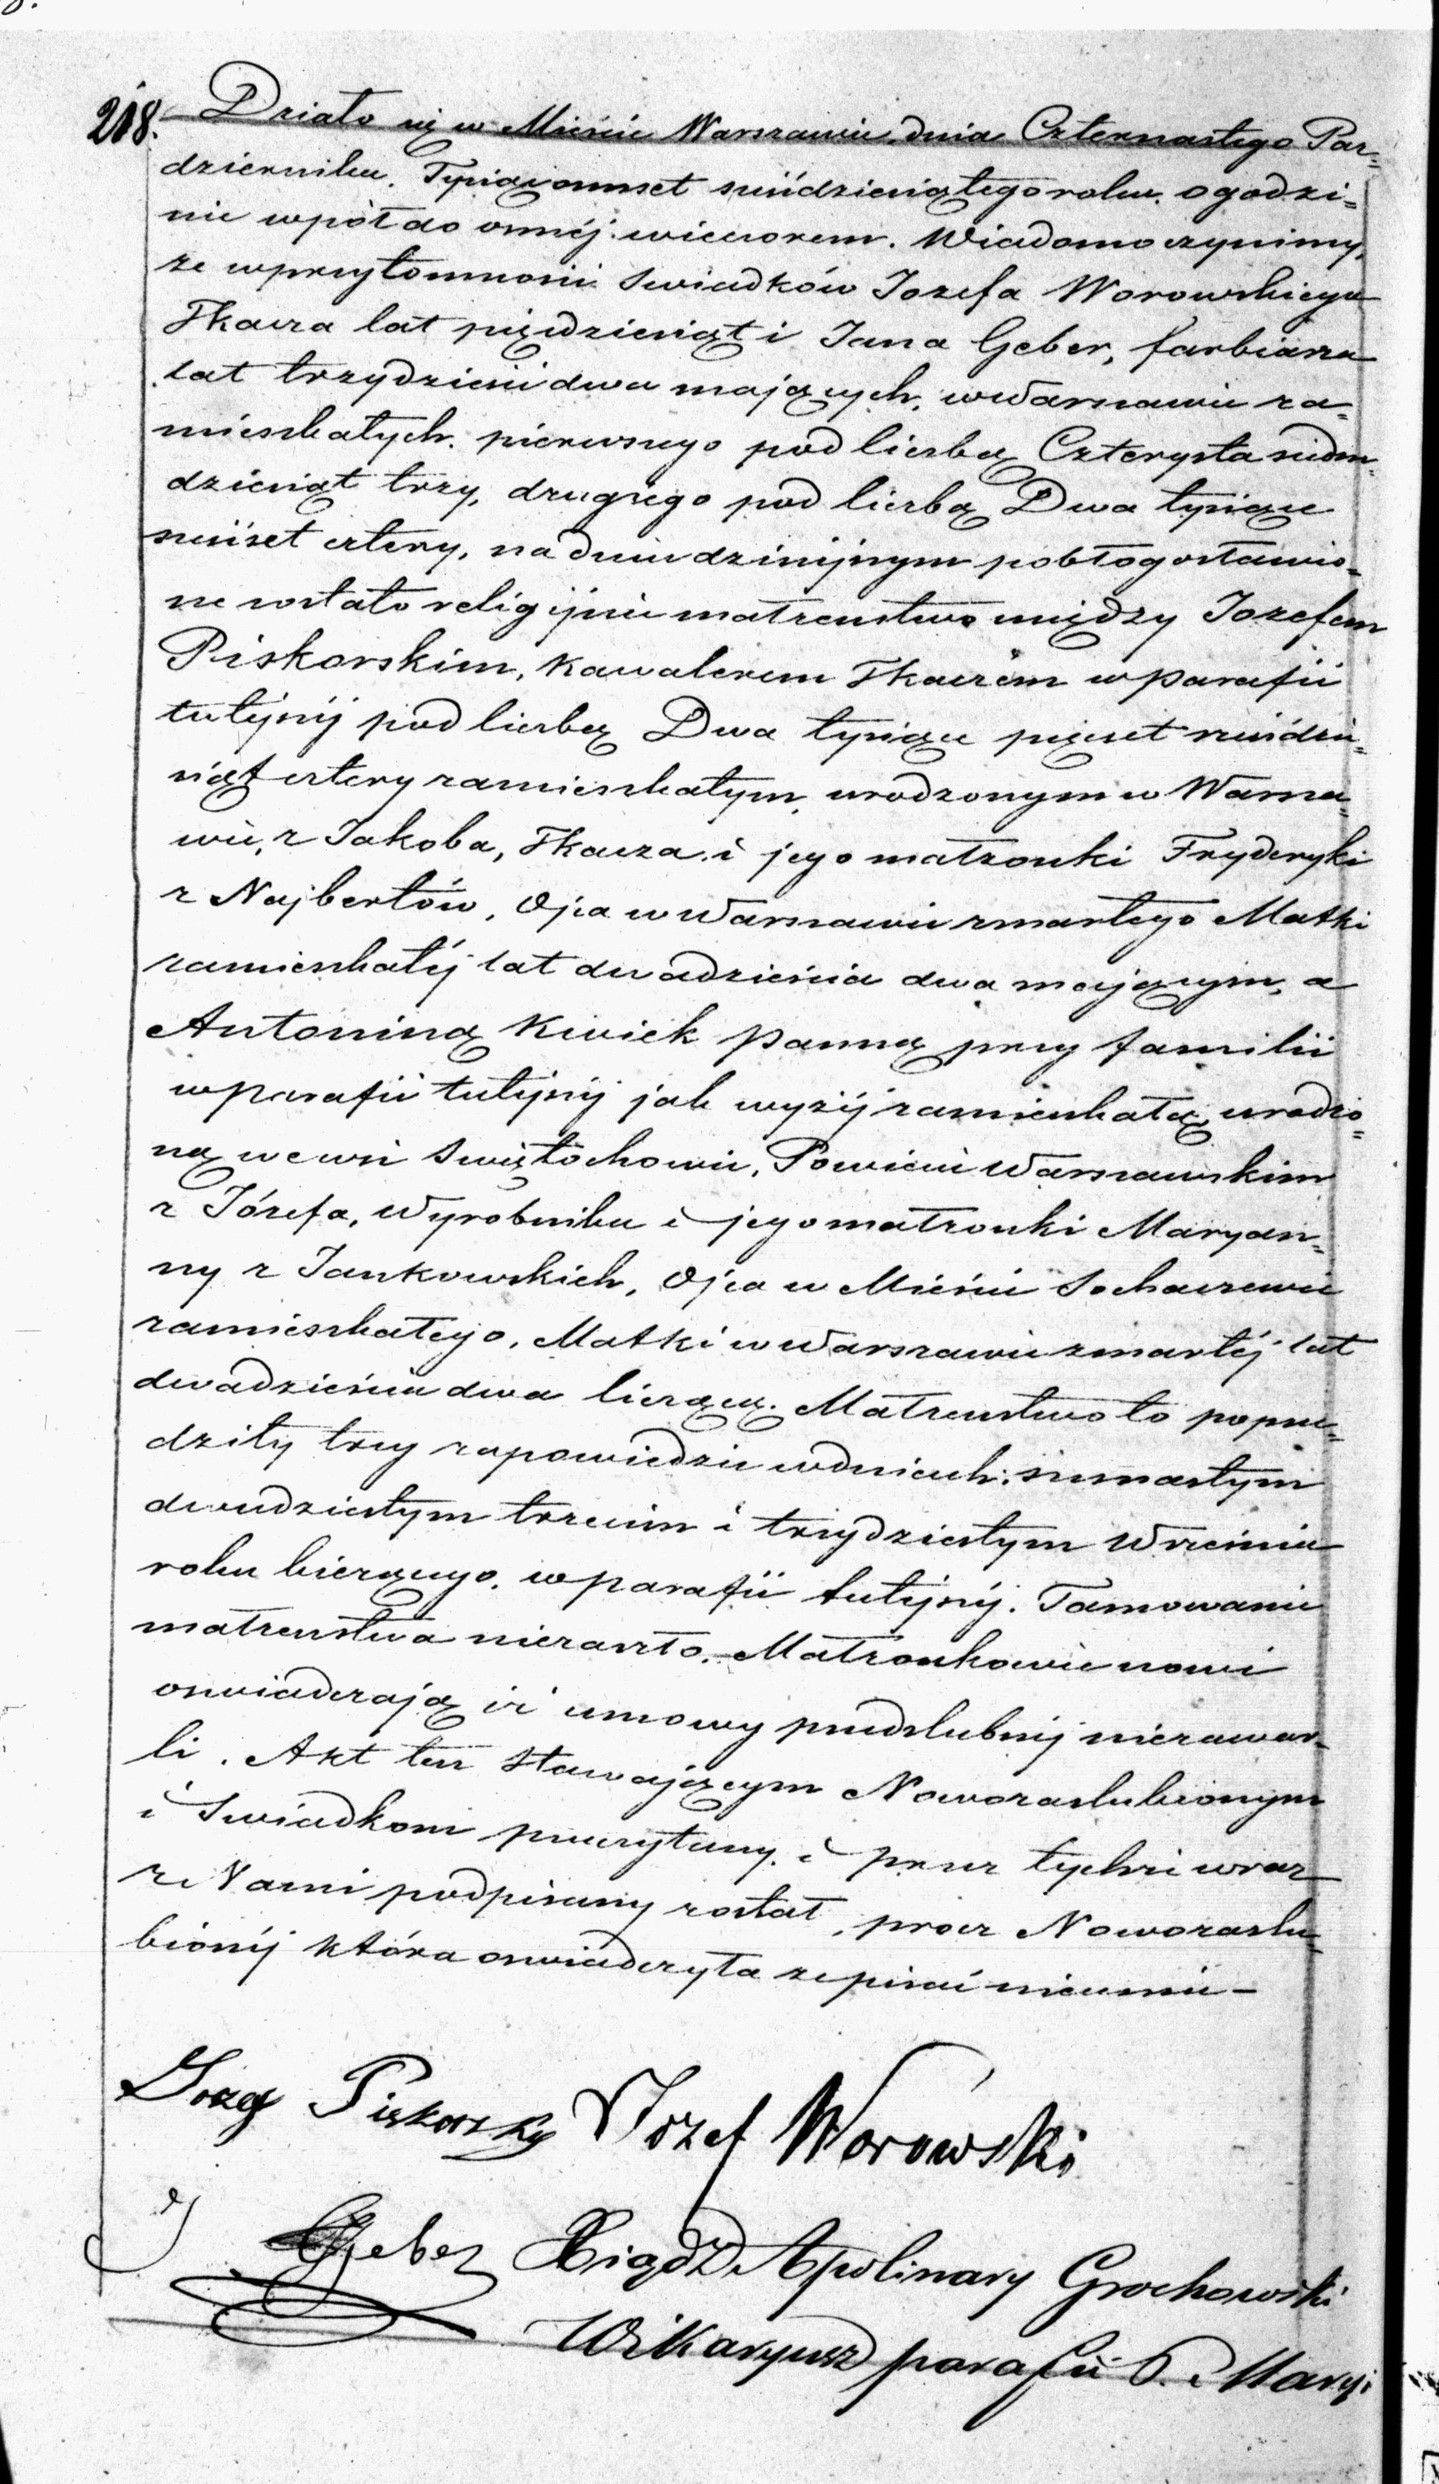 218. Działo się w Mieście Warszawie, dnia Czternastego Paź=
dziernika, Tysiąc ośmset sześćdziesiątego roku, o godzi=
nie wpół do ósméj wieczorem. Wiadomo czynimy,
że w przytomności Swiadków Jozefa Worowskiego
Tkacza lat pięćdziesiąt i Jana Geber, farbiarza
lat trzydzieści dwa mających, w Warszawie za=
mieszkałych, pierwszego pod liczbą Czterysta siedm=
dziesiąt trzy, drugiego pod liczbą Dwa tysiące
sześćset cztery, na dniu dzisiejszym pobłogosławio=
ne zostało religijnie małżeństwo między Jozefem
Piskorskim, Kawalerem Tkaczem w parafii
tutejszéj pod liczbą Dwa tysiące pięćset sześćdzie=
siąt cztery zamieszkałym, urodzonym w Warsza=
wie, z Jakoba, Tkacza i jego małżonki Fryderyki
z Najbertów, Ojca w Warszawie zmarłego Matki
zamieszkałéj lat dwadzieścia dwa mającym, a
Antoniną Kwiek Panną przy familii
w parafii tutejszéj jak wyżéj zamieszkałą, urodzo=
ną we wsi Swiętochowie, Powiecie Warszawskim
z Józefa, Wyrobnika i jego małżonki Maryan=
ny z Jankowskich, Ojca w Mieście Sochaczewie
zamieszkałego, Matki w Warszawie zmarłéj lat
dwadzieścia dwa liczącą. Małżeństwo to poprze=
dziły trzy zapowiedzie w dniach: szesnastym
dwudziestym trzecim i trzydziestym Września
roku bieżącego, w parafii tutejszéj. Tamowanie
małżeństwa niezaszło. Małżonkowie nowi
oswiadczają iż umowy przedslubnéj niezawar=
li. Akt ten Stawającym Nowozaslubionym
i Swiadkom przeczytany, i przez tychże wraz
z Nami podpisany został, prócz Nowozaslu=
bionéj która oswiadczyła że pisać nieumie –
Jozef Piskorsky Jozef Worowski
J Geber Xiądz Apolinary Grochowski
Wikaryusz parafii P. Maryi